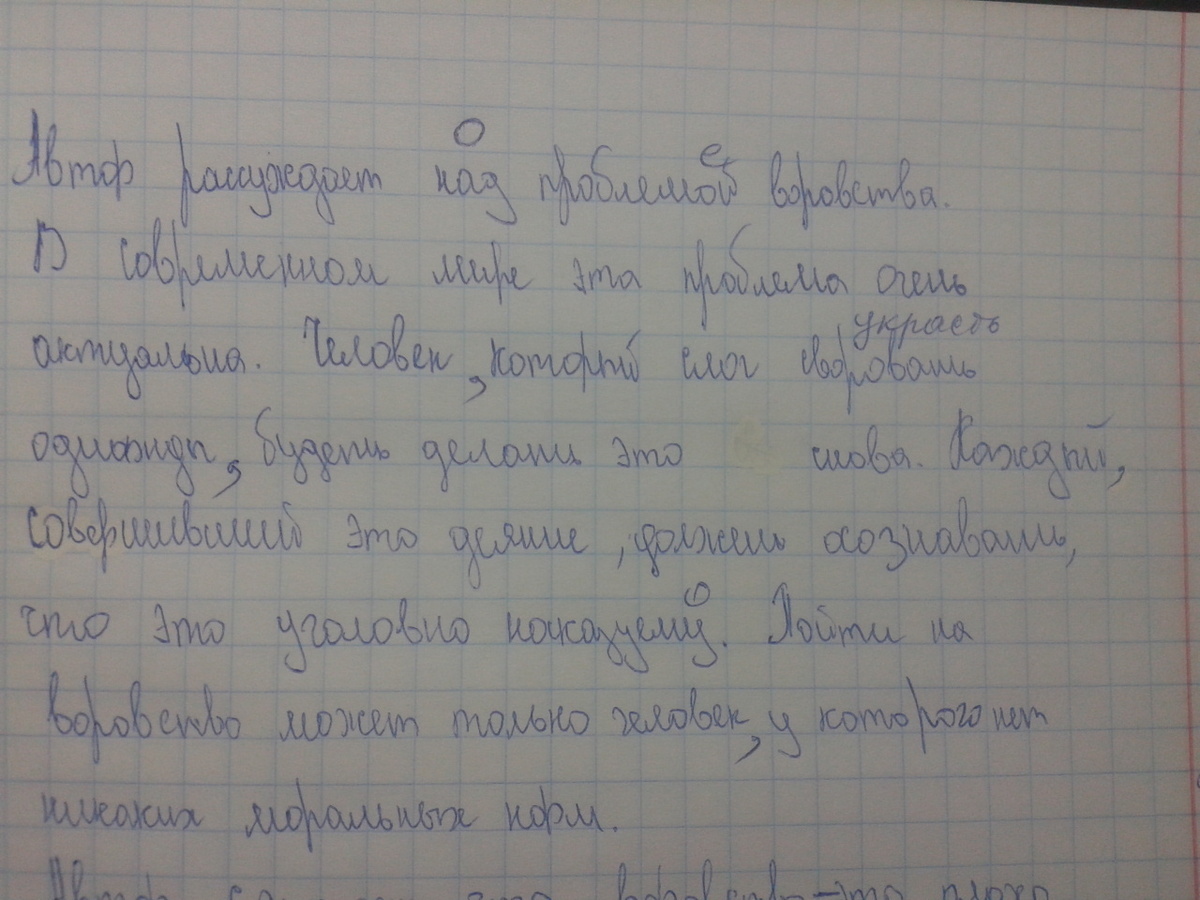 О
е
Автор рассуждает над проблемой воровства.
В современном мире эта проблема очень
украсть
актуальна. Человек, который смог своровать
однажды, будеть делать это снова. Каждый,
совершивший это деяние, должень осознавать,
о
что это уголовно наказуему. Пойти на
воровство может только человек, у которого нет
никаких моральных норм.
Автор воровство - это плохо